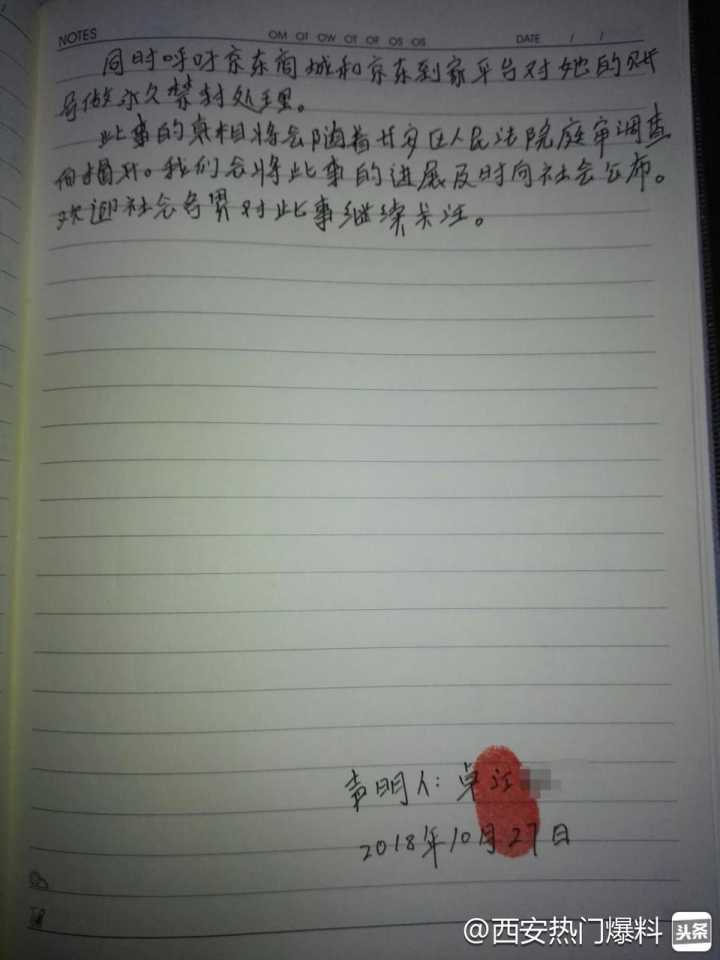 NOTES OM OT OW OT OF OS OS DATE / /
同时呼吁京东商城和京东到家平台对她的账
号做永久禁封处理。
此事的真相将会随着长安区人民法院庭审调查
而揭开。我们会将此事的进展及时向社会公布。
欢迎社会各界对此事继续关注。
声明人: 卓
2018年10月27日
@西安热门爆料 头条